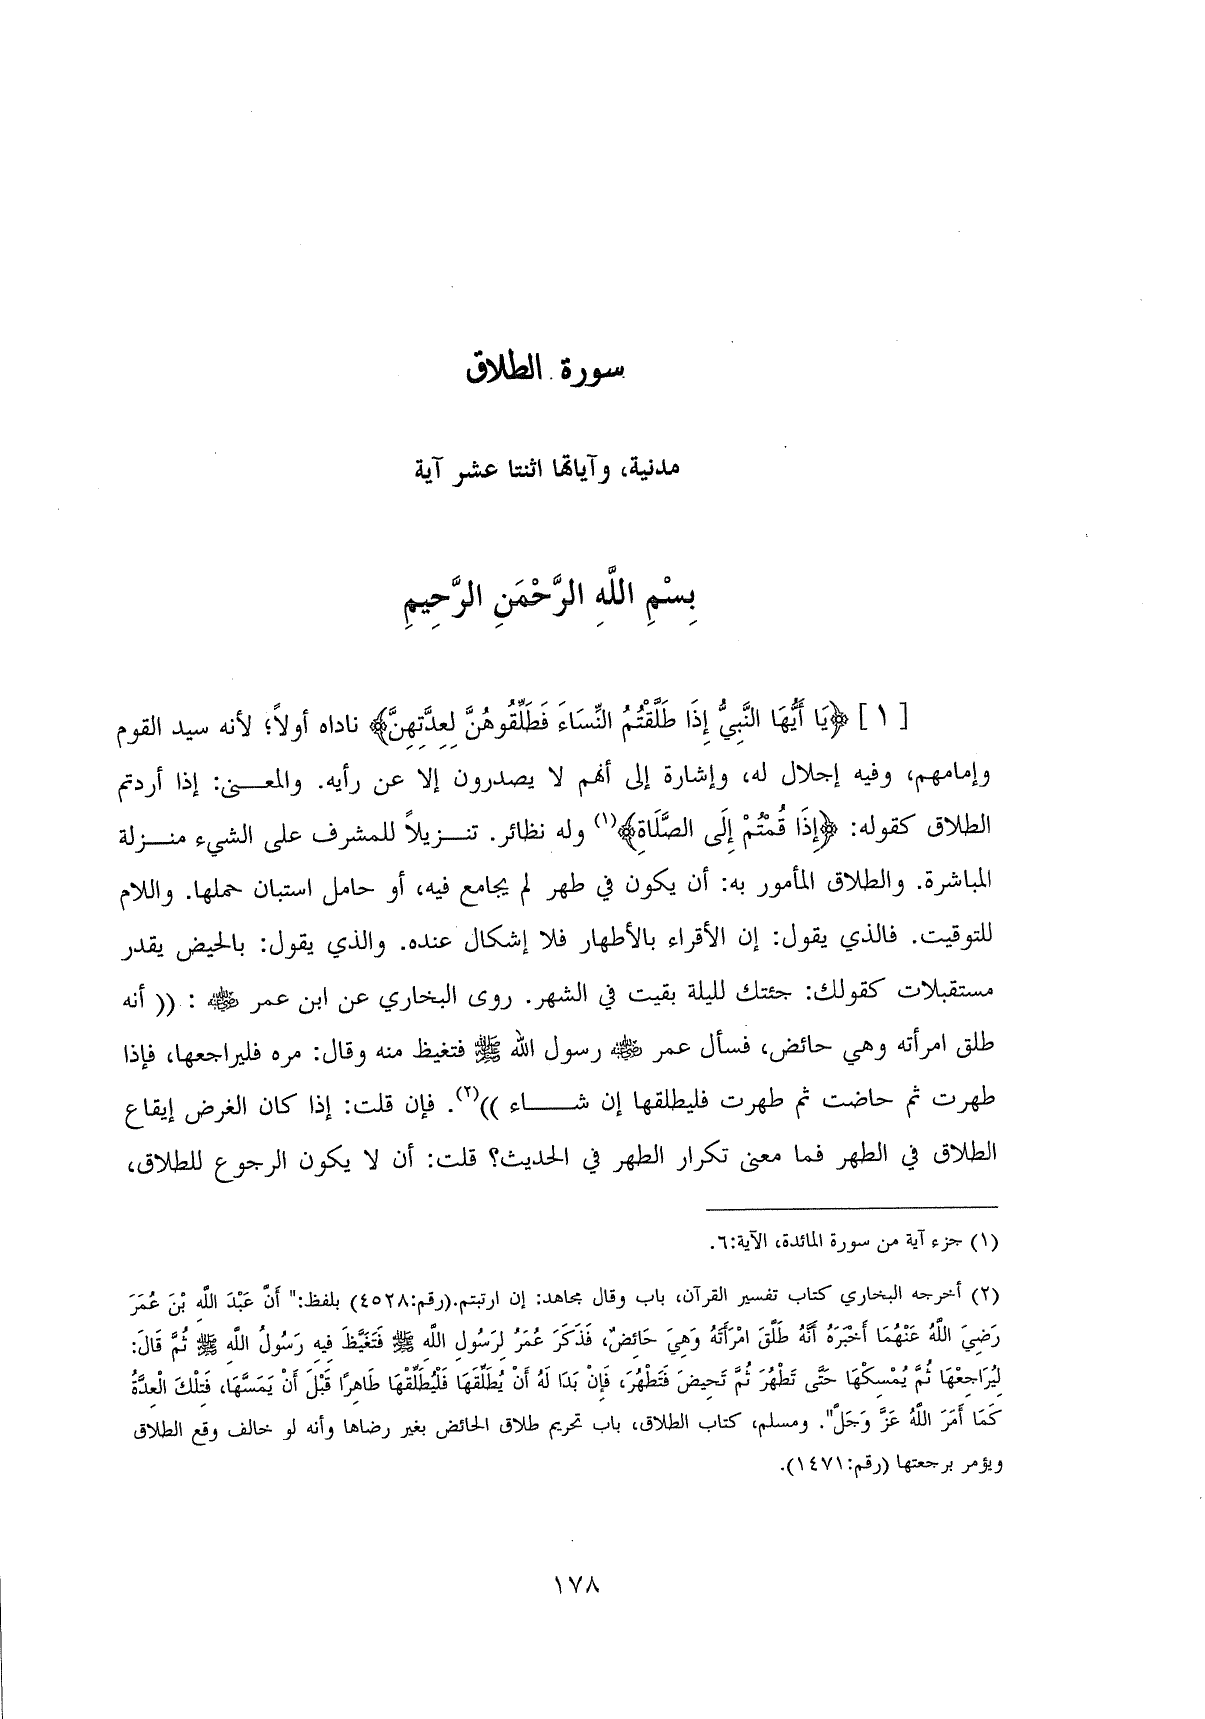 سورة الطلاق
مدنية، وآياتها اثنتا عشر آية
بِسْمِ اللَّهِ الرَّحْمَنِ الرَّحِيمِ
[١] ﴿يَا أَيُّهَا النَّبِيُّ إِذَا طَلَّقْتُمُ النِّسَاءَ فَطَلِّقُوهُنَّ لِعِدَّتِهِنَّ﴾ ناداه أولاً؛ لأنه سيد القوم
وإمامهم، وفيه إجلال له، وإشارة إلى أنهم لا يصدرون إلا عن رأيه. والمعـــنى: إذا أردتم
الطلاق كقوله: ﴿إِذَا قُمْتُمْ إِلَى الصَّلَاةِ﴾(١) وله نظائر. تنـــزيلاً للمشرف على الشيء منـــزلة
المباشرة. والطلاق المأمور به: أن يكون في طهر لم يجامع فيه، أو حامل استبان حملها. واللام
للتوقيت. فالذي يقول: إن الأقراء بالأطهار فلا إشكال عنده. والذي يقول: بالحيض يقدر
مستقبلات كقولك: جئتك لليلة بقيت في الشهر. روى البخاري عن ابن عمر ﵁ : (( أنه
طلق امرأته وهي حائض، فسأل عمر ﵁ رسول الله ﷺ فتغيظ منه وقال: مره فليراجعها، فإذا
طهرت ثم حاضت ثم طهرت فليطلقها إن شـــــاء ))(٢). فإن قلت: إذا كان الغرض إيقاع
الطلاق في الطهر فما معنى تكرار الطهر في الحديث؟ قلت: أن لا يكون الرجوع للطلاق،
(١) جزء آية من سورة المائدة، الآية:٦.
(٢) أخرجه البخاري كتاب تفسير القرآن، باب وقال مجاهد: إن ارتبتم.(رقم:٤٥٢٨) بلفظ:" أَنَّ عَبْدَ اللَّهِ بْنَ عُمَرَ
رَضِيَ اللَّهُ عَنْهُمَا أَخْبَرَهُ أَنَّهُ طَلَّقَ امْرَأَتَهُ وَهِيَ حَائِضٌ، فَذَكَرَ عُمَرُ لِرَسُولِ اللَّهِ ﷺ فَتَغَيَّظَ فِيهِ رَسُولُ اللَّهِ ﷺ ثُمَّ قَالَ:
لِيُرَاجِعْهَا ثُمَّ يُمْسِكْهَا حَتَّى تَطْهُرَ ثُمَّ تَحِيضَ فَتَطْهُرَ، فَإِنْ بَدَا لَهُ أَنْ يُطَلِّقَهَا فَلْيُطَلِّقْهَا طَاهِرًا قَبْلَ أَنْ يَمَسَّهَا، فَتِلْكَ الْعِدَّةُ
كَمَا أَمَرَ اللَّهُ عَزَّ وَجَلَّ". ومسلم، كتاب الطلاق، باب تحريم طلاق الحائض بغير رضاها وأنه لو خالف وقع الطلاق
ويؤمر برجعتها (رقم:١٤٧١).
١٧٨